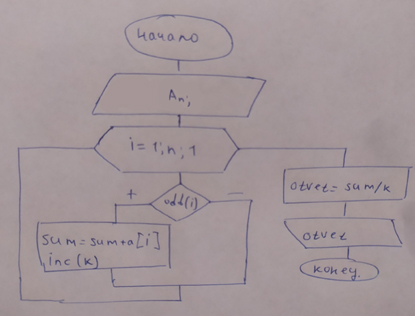 начало
An;
i=1;n;1
+
odd(i)
—
sum=sum+a[i]
inc(k)
otvet=sum/k
otvet
конец